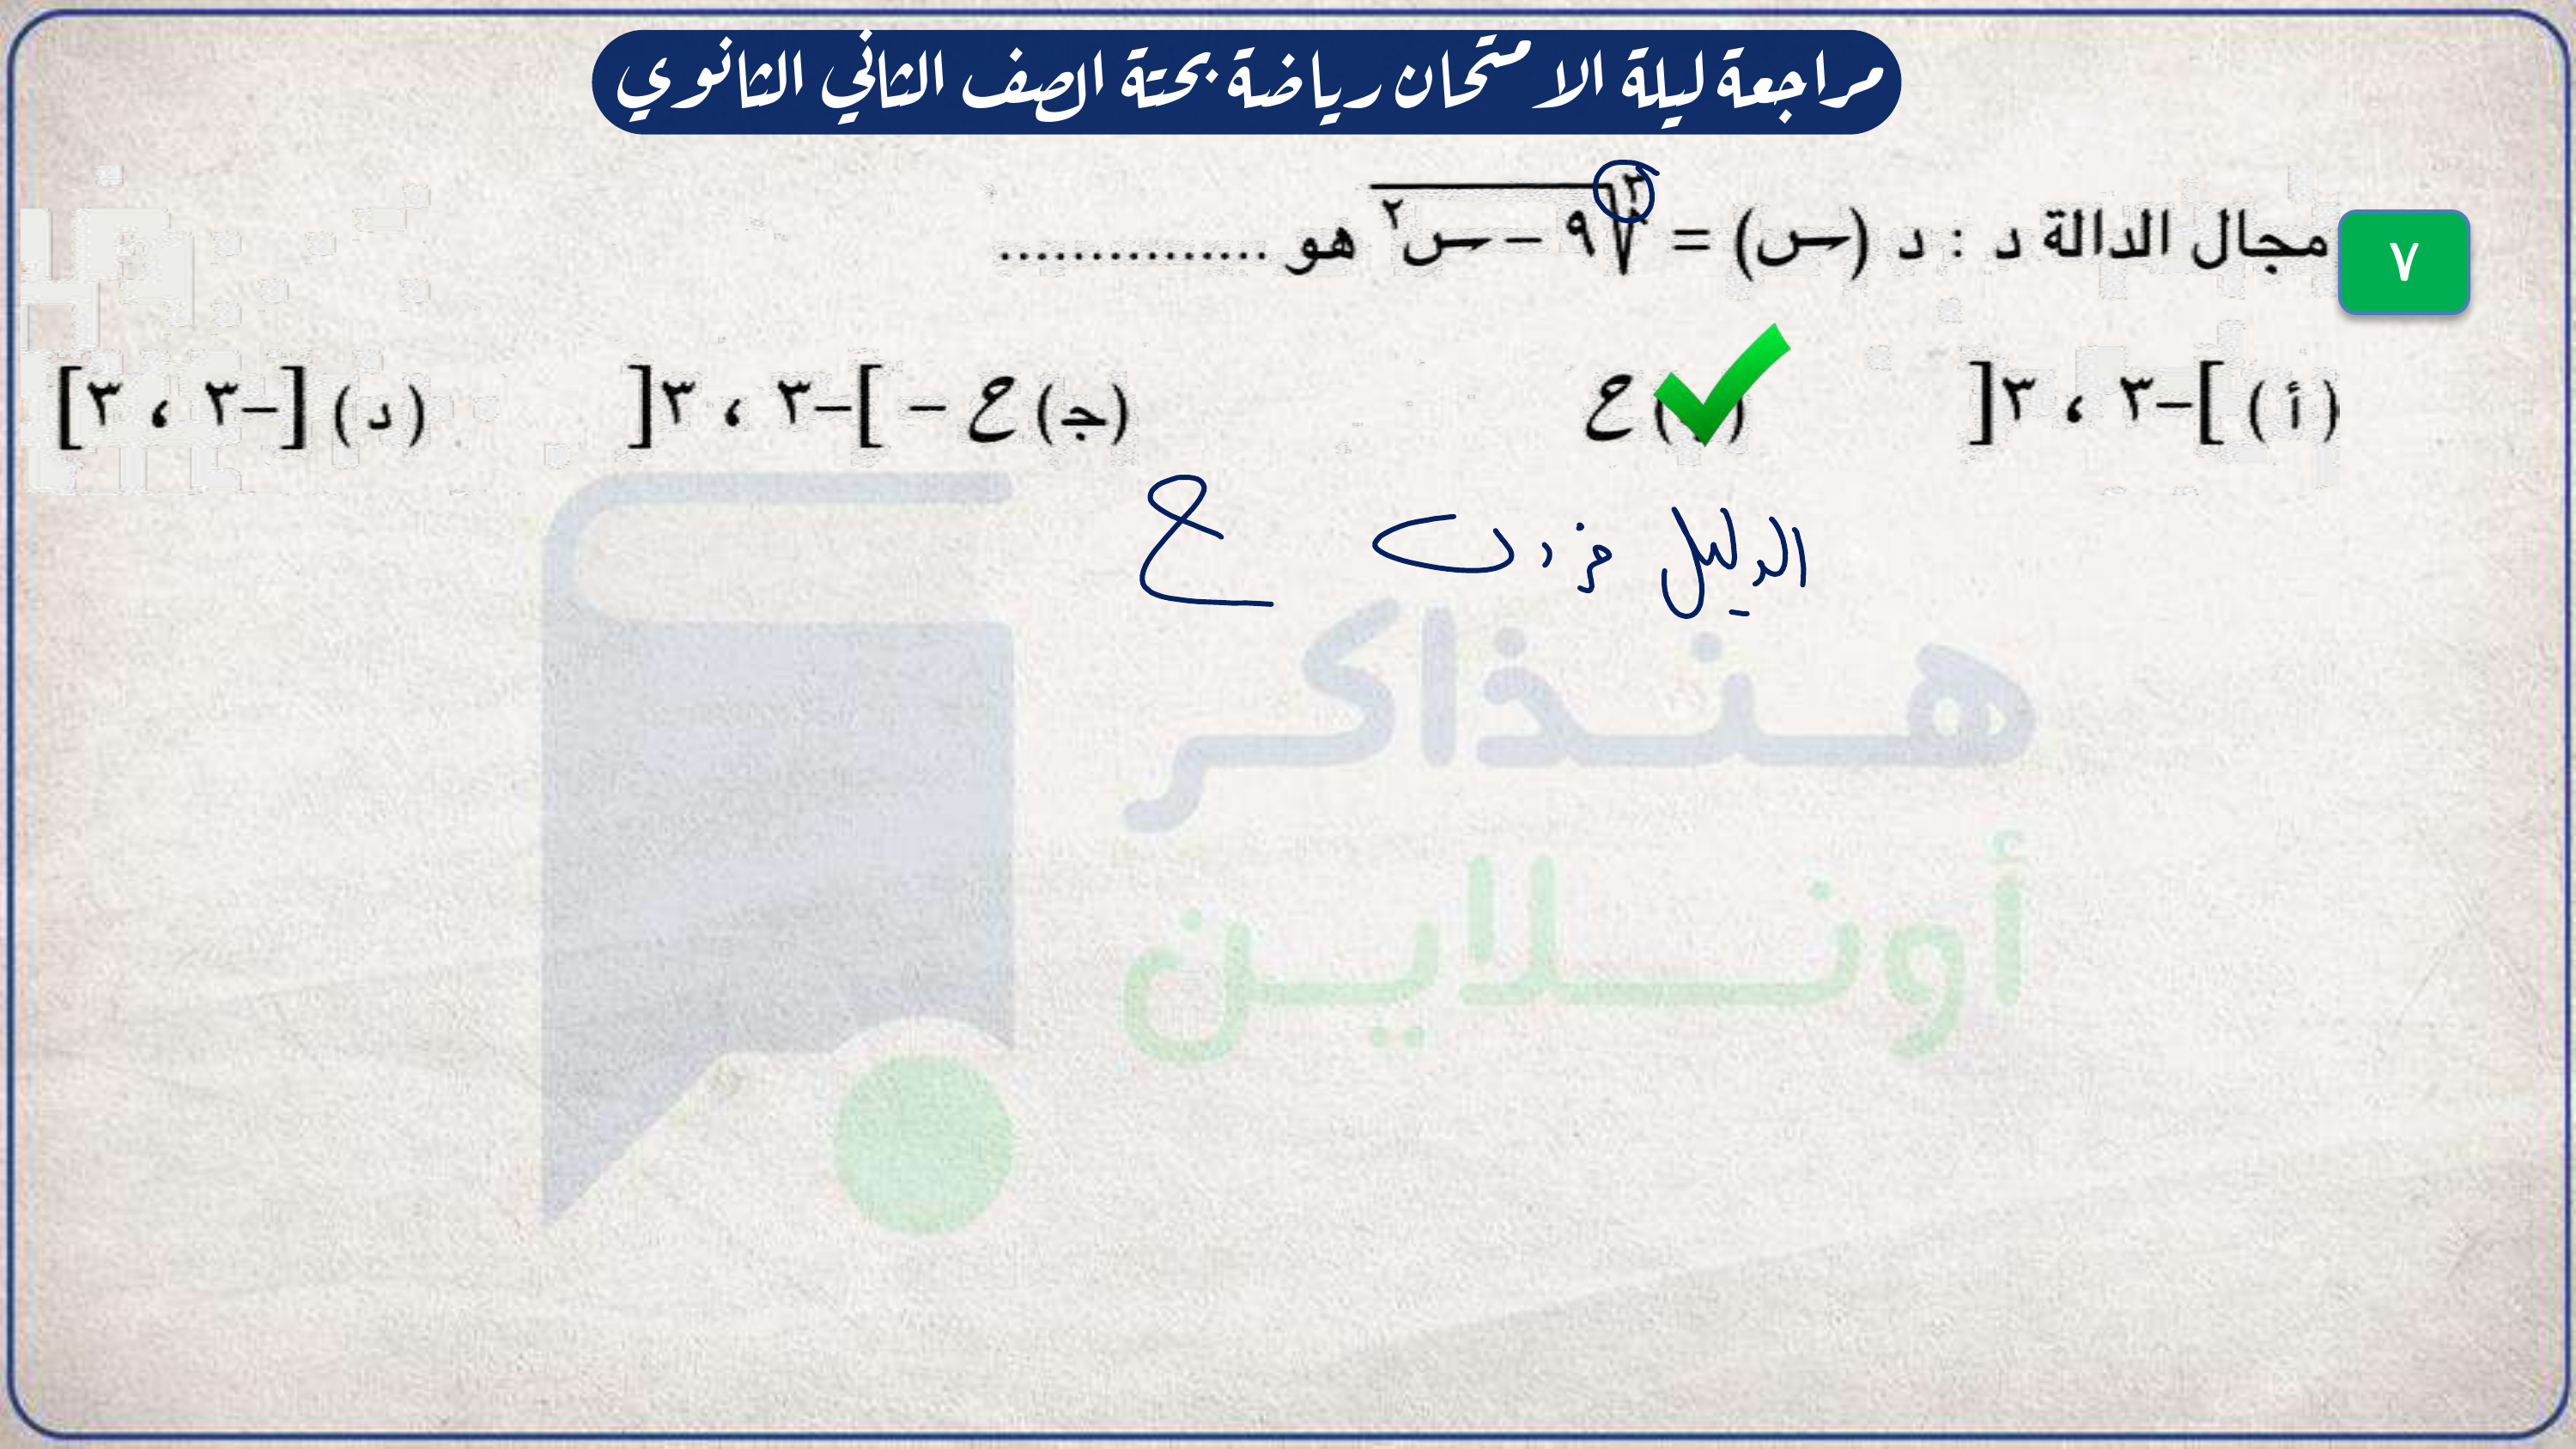 مراجعة ليلة الامتحان رياضة بحتة الصف الثاني الثانوي
٧ مجال الدالة د : د (س) = ∛(٩ – س٢) هو ...............
(أ) ]–٣ ، ٣[ ( ) ح (جـ) ح – ]–٣ ، ٣[ (د) [–٣ ، ٣]
الدليل فردى ح
هنذاكر
أونلاين